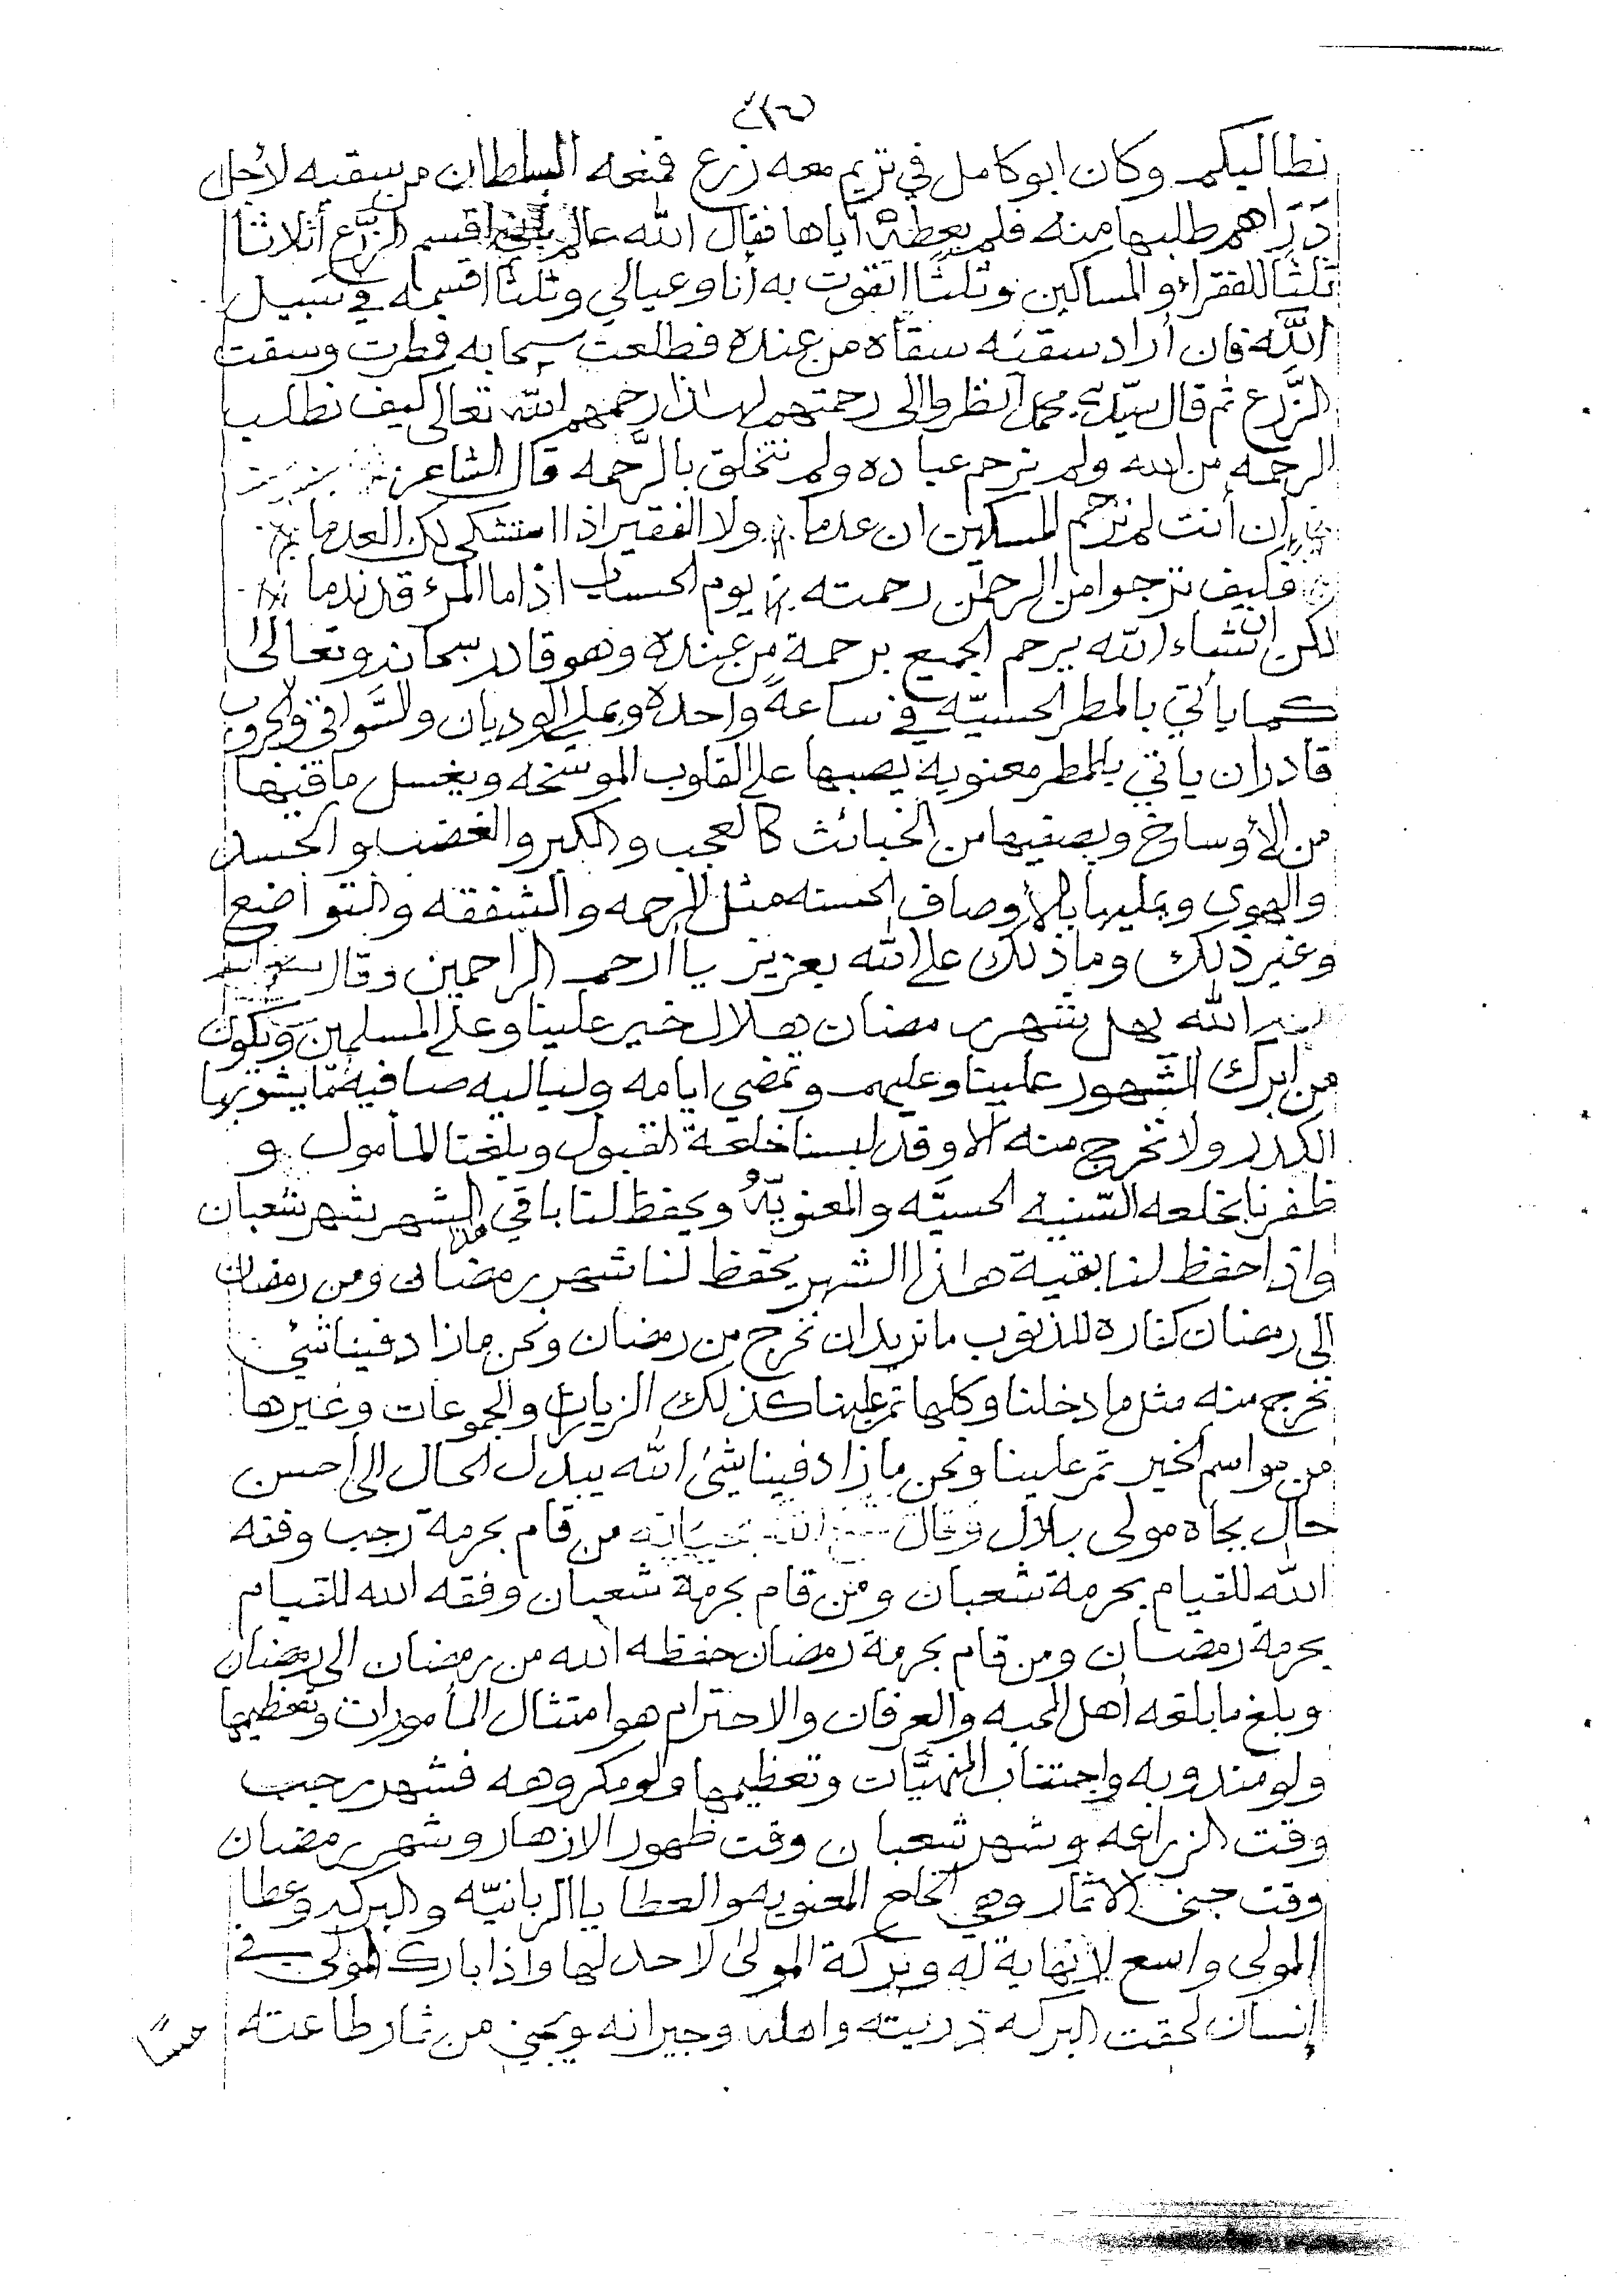 نطالبكم وكان ابو كامل في تريم معه زرع فمنعه السلطان من سقيه لأجل
دَرَاهم طلبها منه فلم يعطه اياها فقال الله عالم اقسم الزرع أثلاثا
ثلثا للفقراء والمساكين وثلثا اتقوت به أنا وعيالي وثلثا اقسمه في سَبيل
الله فان أراد سقيه سقاه من عنده فطلعت سحابه فمطرت وسقت
الزَّرع ثم قال سيّدي محمل انظروا الى رحمتهم لهذا رحمهم الله تعالى كيف نطلب
الرحمه من الله ولم نرحم عباده ولم نتخلق بالرَّحمه قال الشاعر
إن أنت لم ترحم المسكين ان عدما ولا الفقير اذا اشتكى لك العدما
فكيف ترجوا من الرحمٰن رحمته يوم الحساب اذا ما المرء قد ندما
لكن ان شاء الله يرحم الجميع برحمة من عنده وهو قادر سبحانه وتعالى
كما يأتي بالمطر الحسيّه في ساعة واحده ويملي الوديان والسَّواقي والجروب
قادر ان ياتي بالمطر معنويه يصبها على القلوب الموسخه ويغسل ما فيها
من الأوساخ ويصفيها من الخبائث كالعجب والكبر والغضب والحسد
والهوى ويمليها بالأوصاف الحسنه مثل الرحمه والشفقه والتواضع
وغير ذلك وما ذلك على الله بعزيز يا أرحم الراحمين وقال
الله يهل شهر رمضان هلال خير علينا وعلى المسلمين ويكون
من ابرك الشهور علينا وعليهم وتمضي ايامه ولياليه صافيه مما يشوبها
الكدر ولا نخرج منه الا وقد لبسنا خلعة القبول وبلغنا المأمول و
ظفرنا بخلعه السّنيه الحسيَّه والمعنويّه ويحفظ لنا باقي الشهر شهر شعبان
واذا حفظ لنا بقية هذا الشهر يحفظ لنا شهر رمضان ومن رمضان
الى رمضان كفاره للذنوب ما نريد ان نخرج من رمضان ونحن ما زاد فينا شئ
نخرج منه مثل ما دخلنا وكلها تمر علينا كذلك الزيارات والجموعات وغيرها
من مواسم الخير تمر علينا ونحن ما زاد فينا شئ الله يبدل الحال الى احسن
حال بجاه مولى بلال وقال من قام بحرمة رجب وفقه
الله للقيام بحرمة شعبان ومن قام بحرمة شعبان وفقه الله للقيام
بحرمة رمضان ومن قام بحرمة رمضان حفظه الله من رمضان الى رمضان
وبلغ ما بلغه أهل المحبه والعرفان والاحترام هو امتثال المأمورات وتعظيمها
ولو مندوبه واجتناب المنهيَّات وتعظيمها ولو مكروهه فشهر رجب
وقت الزراعه وشهر شعبان وقت ظهور الازهار وشهر رمضان
وقت جني الاثمار وهي الخلع المعنويه والعطايا الربانيّه والبركه وعطا
المولى واسع لا نهاية له وبركة المولى لا حد لها واذا بارك المولى في
إنسان لحقت البركه ذريته واهله وجيرانه ويجني من ثمار طاعته
حسًا